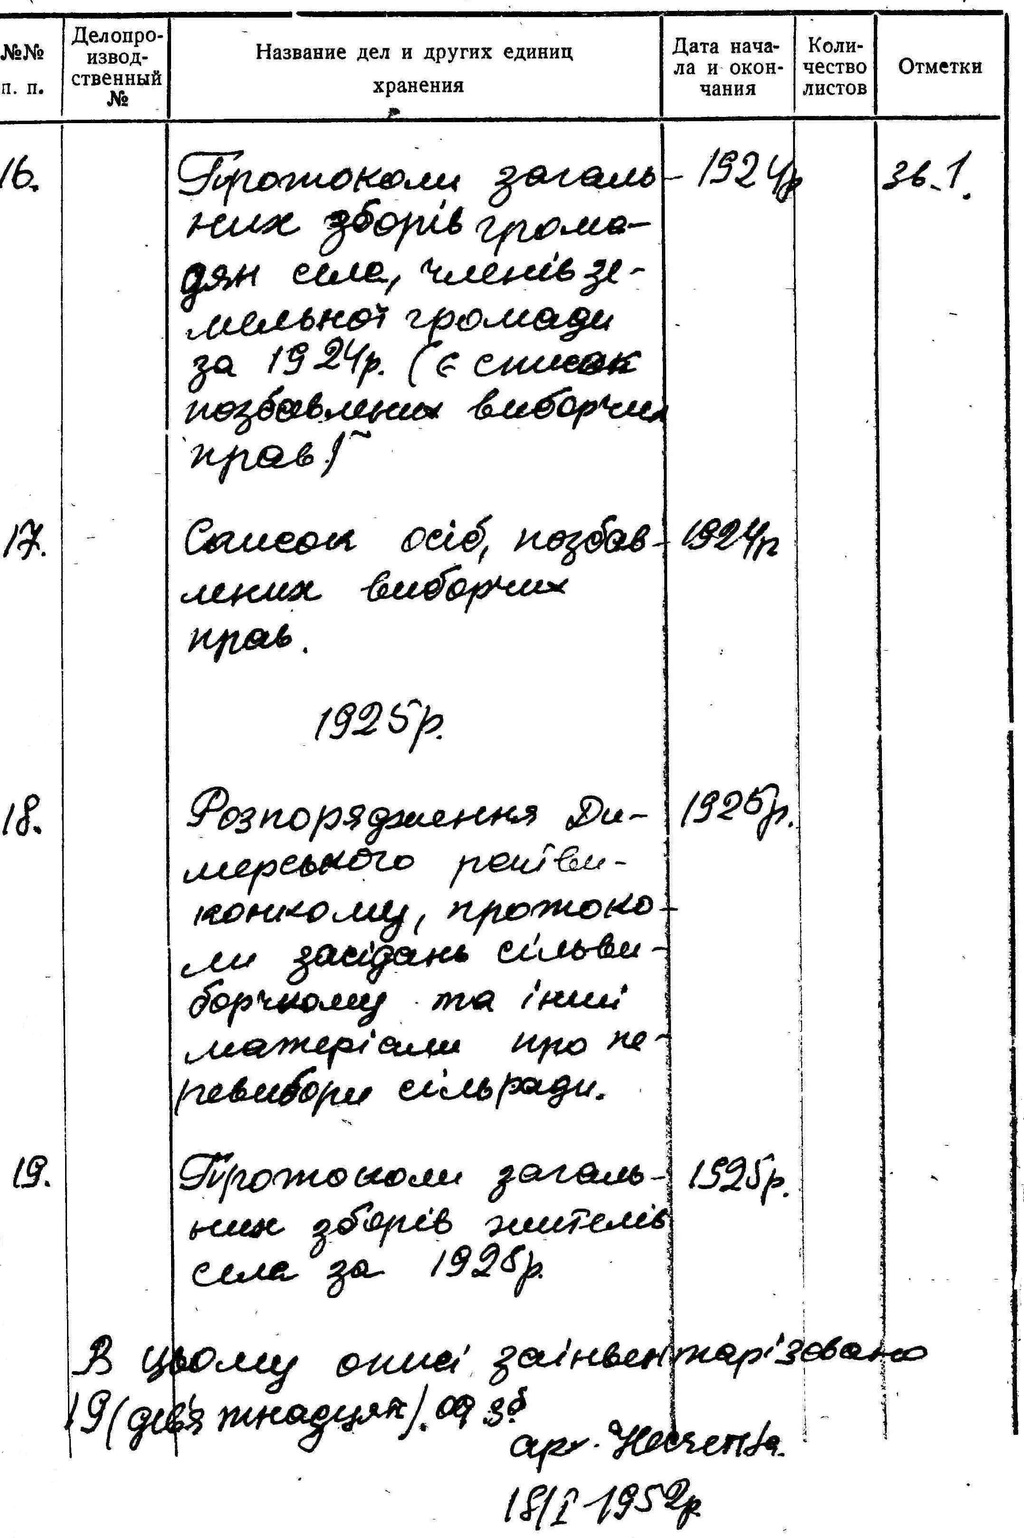 №№ п. п.
Делопро-
извод-
ственный
№
Название дел и других единиц
хранения
Дата нача-
ла и окон-
чания
Коли-
чество
листов
Отметки
16. Протоколи загаль- 1924р зв. 1.
них зборів грома-
дян села, членів зе-
мельної громади
за 1924р. (є список
позбавлених виборчих
прав)
17. Список осіб, позбав- 1924р
лених виборчих
прав.
1925р.
18. Розпорядження Ди- 1925р.
мерського райви-
конкому, протоко-
ли засідань сільви-
борчкому та інші
матеріали про пе-
ревибори сільради.
19. Протоколи загаль- 1925р.
них зборів жителів
села за 1925р.
В цьому описі заінвентарізовано
19 (дев'ятнадцять). од. зб
арх.
18/I-1952р.